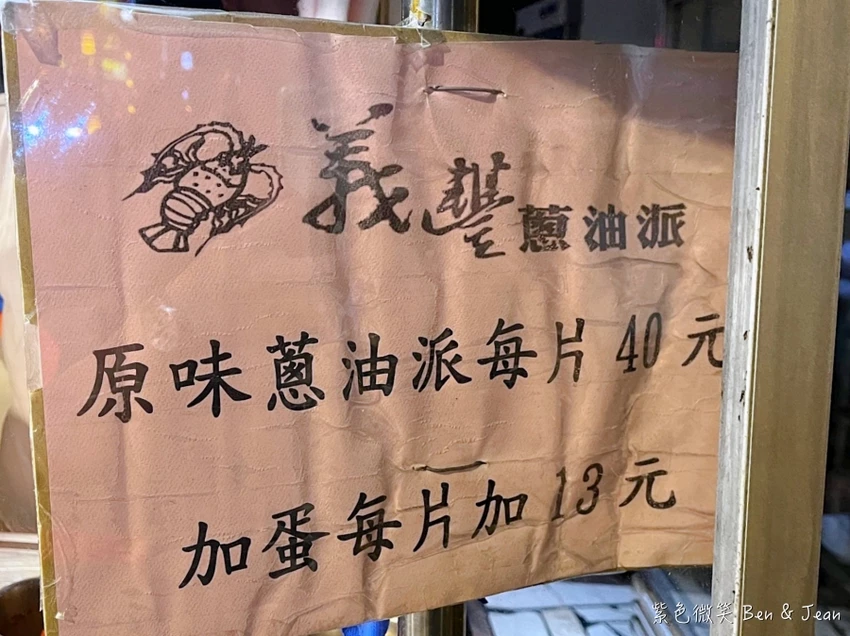 義豐蔥油派
原味蔥油派每片40元
加蛋每片加13元
紫色微笑 Ben & Jean